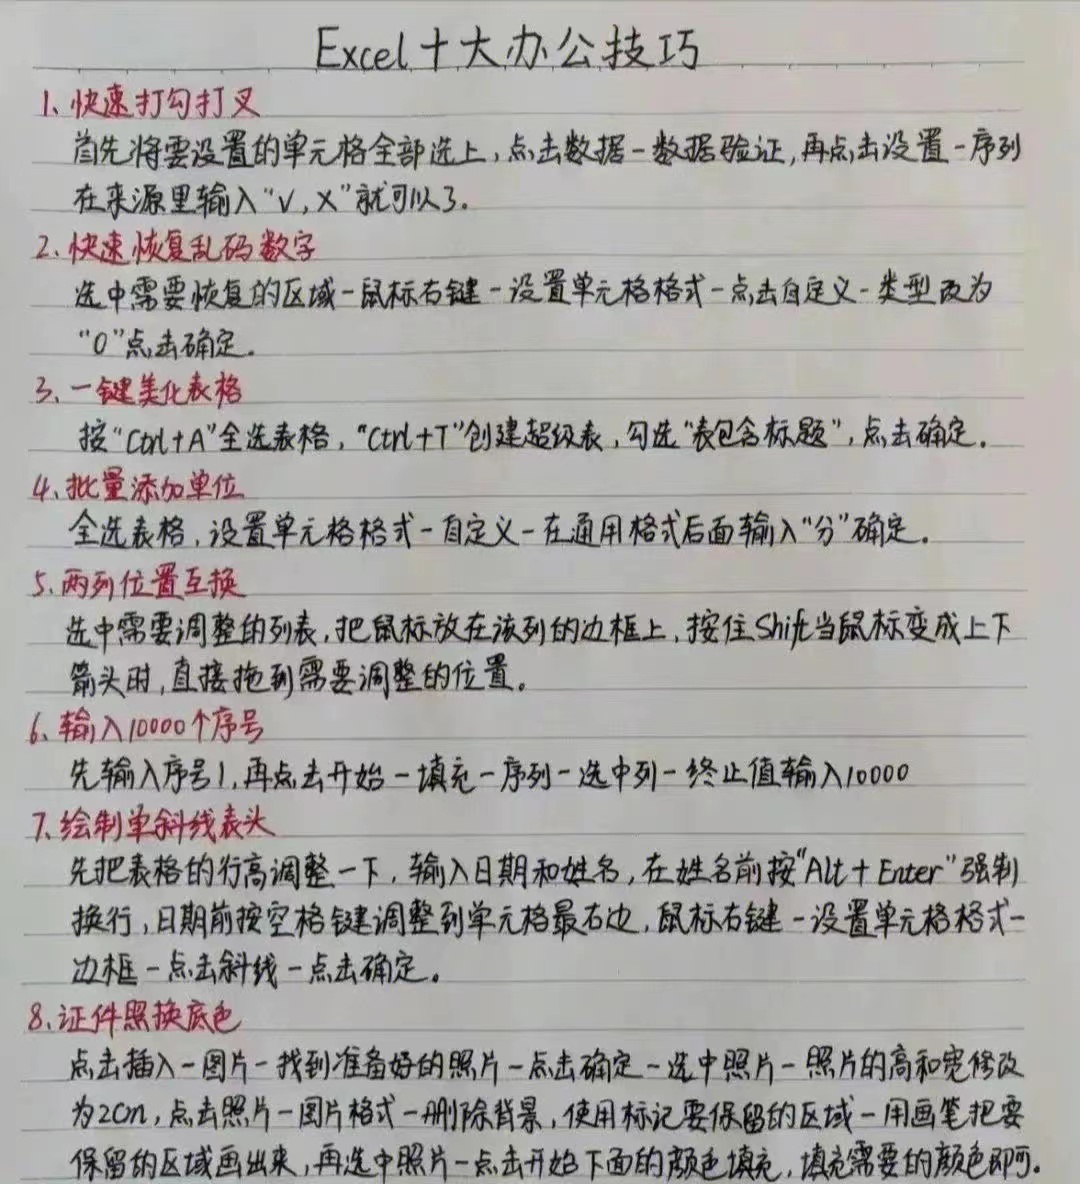 Excel十大办公技巧
1、快速打勾打叉
首先将要设置的单元格全部选上,点击数据-数据验证,再点击设置-序列
在来源里输入“√,X”就可以了.
2、快速恢复乱码数字
选中需要恢复的区域-鼠标右键-设置单元格格式-点击自定义-类型改为
“0”点击确定。
3、一键美化表格
按“Ctrl+A”全选表格,“Ctrl+T”创建超级表,勾选“表包含标题”,点击确定。
4、批量添加单位
全选表格,设置单元格格式-自定义-在通用格式后面输入“分”确定。
5、两列位置互换
选中需要调整的列表,把鼠标放在该列的边框上,按住Shift当鼠标变成上下
箭头时,直接拖到需要调整的位置。
6、输入10000个序号
先输入序号1,再点击开始-填充-序列-选中列-终止值输入10000
7、绘制单斜线表头
先把表格的行高调整一下,输入日期和姓名,在姓名前按“Alt+Enter”强制
换行,日期前按空格键调整到单元格最右边,鼠标右键-设置单元格格式-
边框-点击斜线-点击确定。
8、证件照换底色
点击插入-图片-找到准备好的照片-点击确定-选中照片-照片的高和宽修改
为2cm,点击照片-图片格式-删除背景,使用标记要保留的区域-用画笔把要
保留的区域画出来,再选中照片-点击开始下面的颜色填充,填充需要的颜色即可。